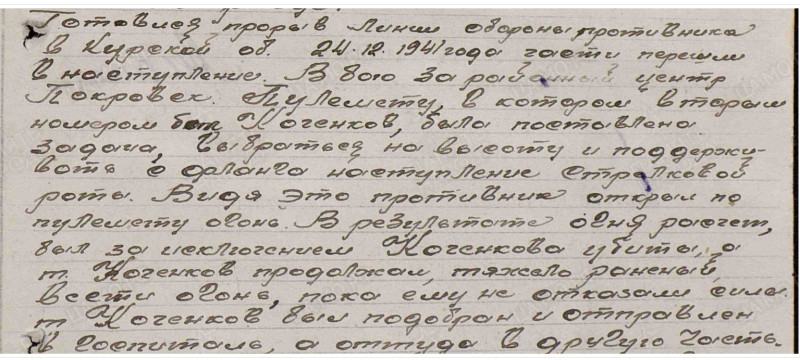 Готовился прорыв линии обороны противника
в Курской об. 24.12.1941 года части перешли
в наступление. В бою за районный центр
Покровск. Пулемету, в котором вторым
номером был Коченков, была поставлена
задача, выбраться на высоту и поддержи-
вать с фланга наступление стрелковой
роты. Видя это противник открыл по
пулемету огонь. В результате огня расчет,
был за исключением Коченкова убиты, а
т. Коченков продолжал, тяжело раненый,
вести огонь, пока ему не отказали силы.
т. Коченков был подобран и отправлен
в госпиталь, а оттуда в другую часть.